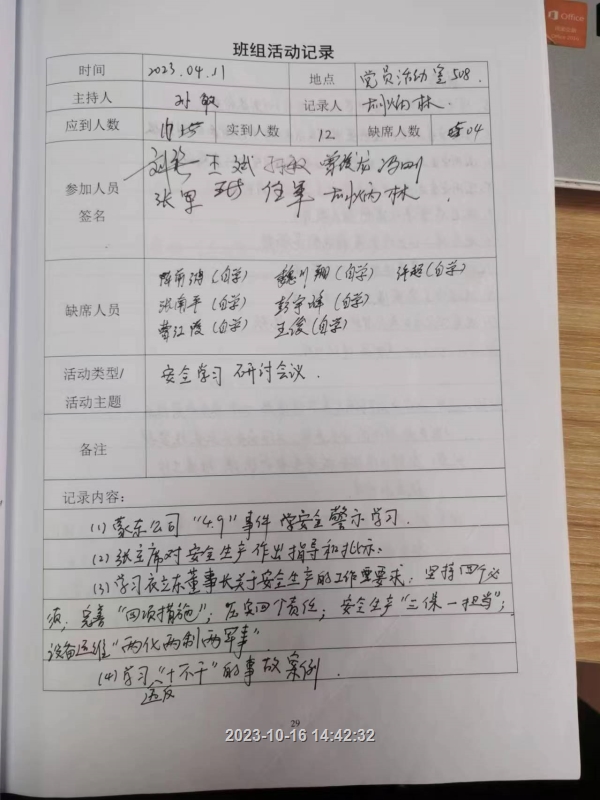 Office
班组活动记录
时间 2023.04.11 地点 党员活动室508.
主持人 孙敏 记录人 炳林.
应到人数 实到人数 12 缺席人数 04
参加人员
签名
王斌 孙敏 冯刚
张军 任军 炳林
缺席人员
(自学) 魏川翔(自学) 许超(自学)
张南平(自学) 彭宇峰(自学)
曹江霞(自学) 王俊(自学)
活动类型/
活动主题
安全学习 研讨会议.
备注
记录内容:
(1) 蒙东公司"4.9"事件 学安全警示学习.
(2) 张主席对安全生产作出指导和批示.
(3) 学习衣立东董事长关于安全生产的工作重要求, 坚持四个必
须; 完善"四项措施"; 压实四个责任; 安全生产"三保一担当";
设备运维"两化两制两军事"
(4) 学习"十不干"的事故案例.
违反
29
2023-10-16 14:42:32